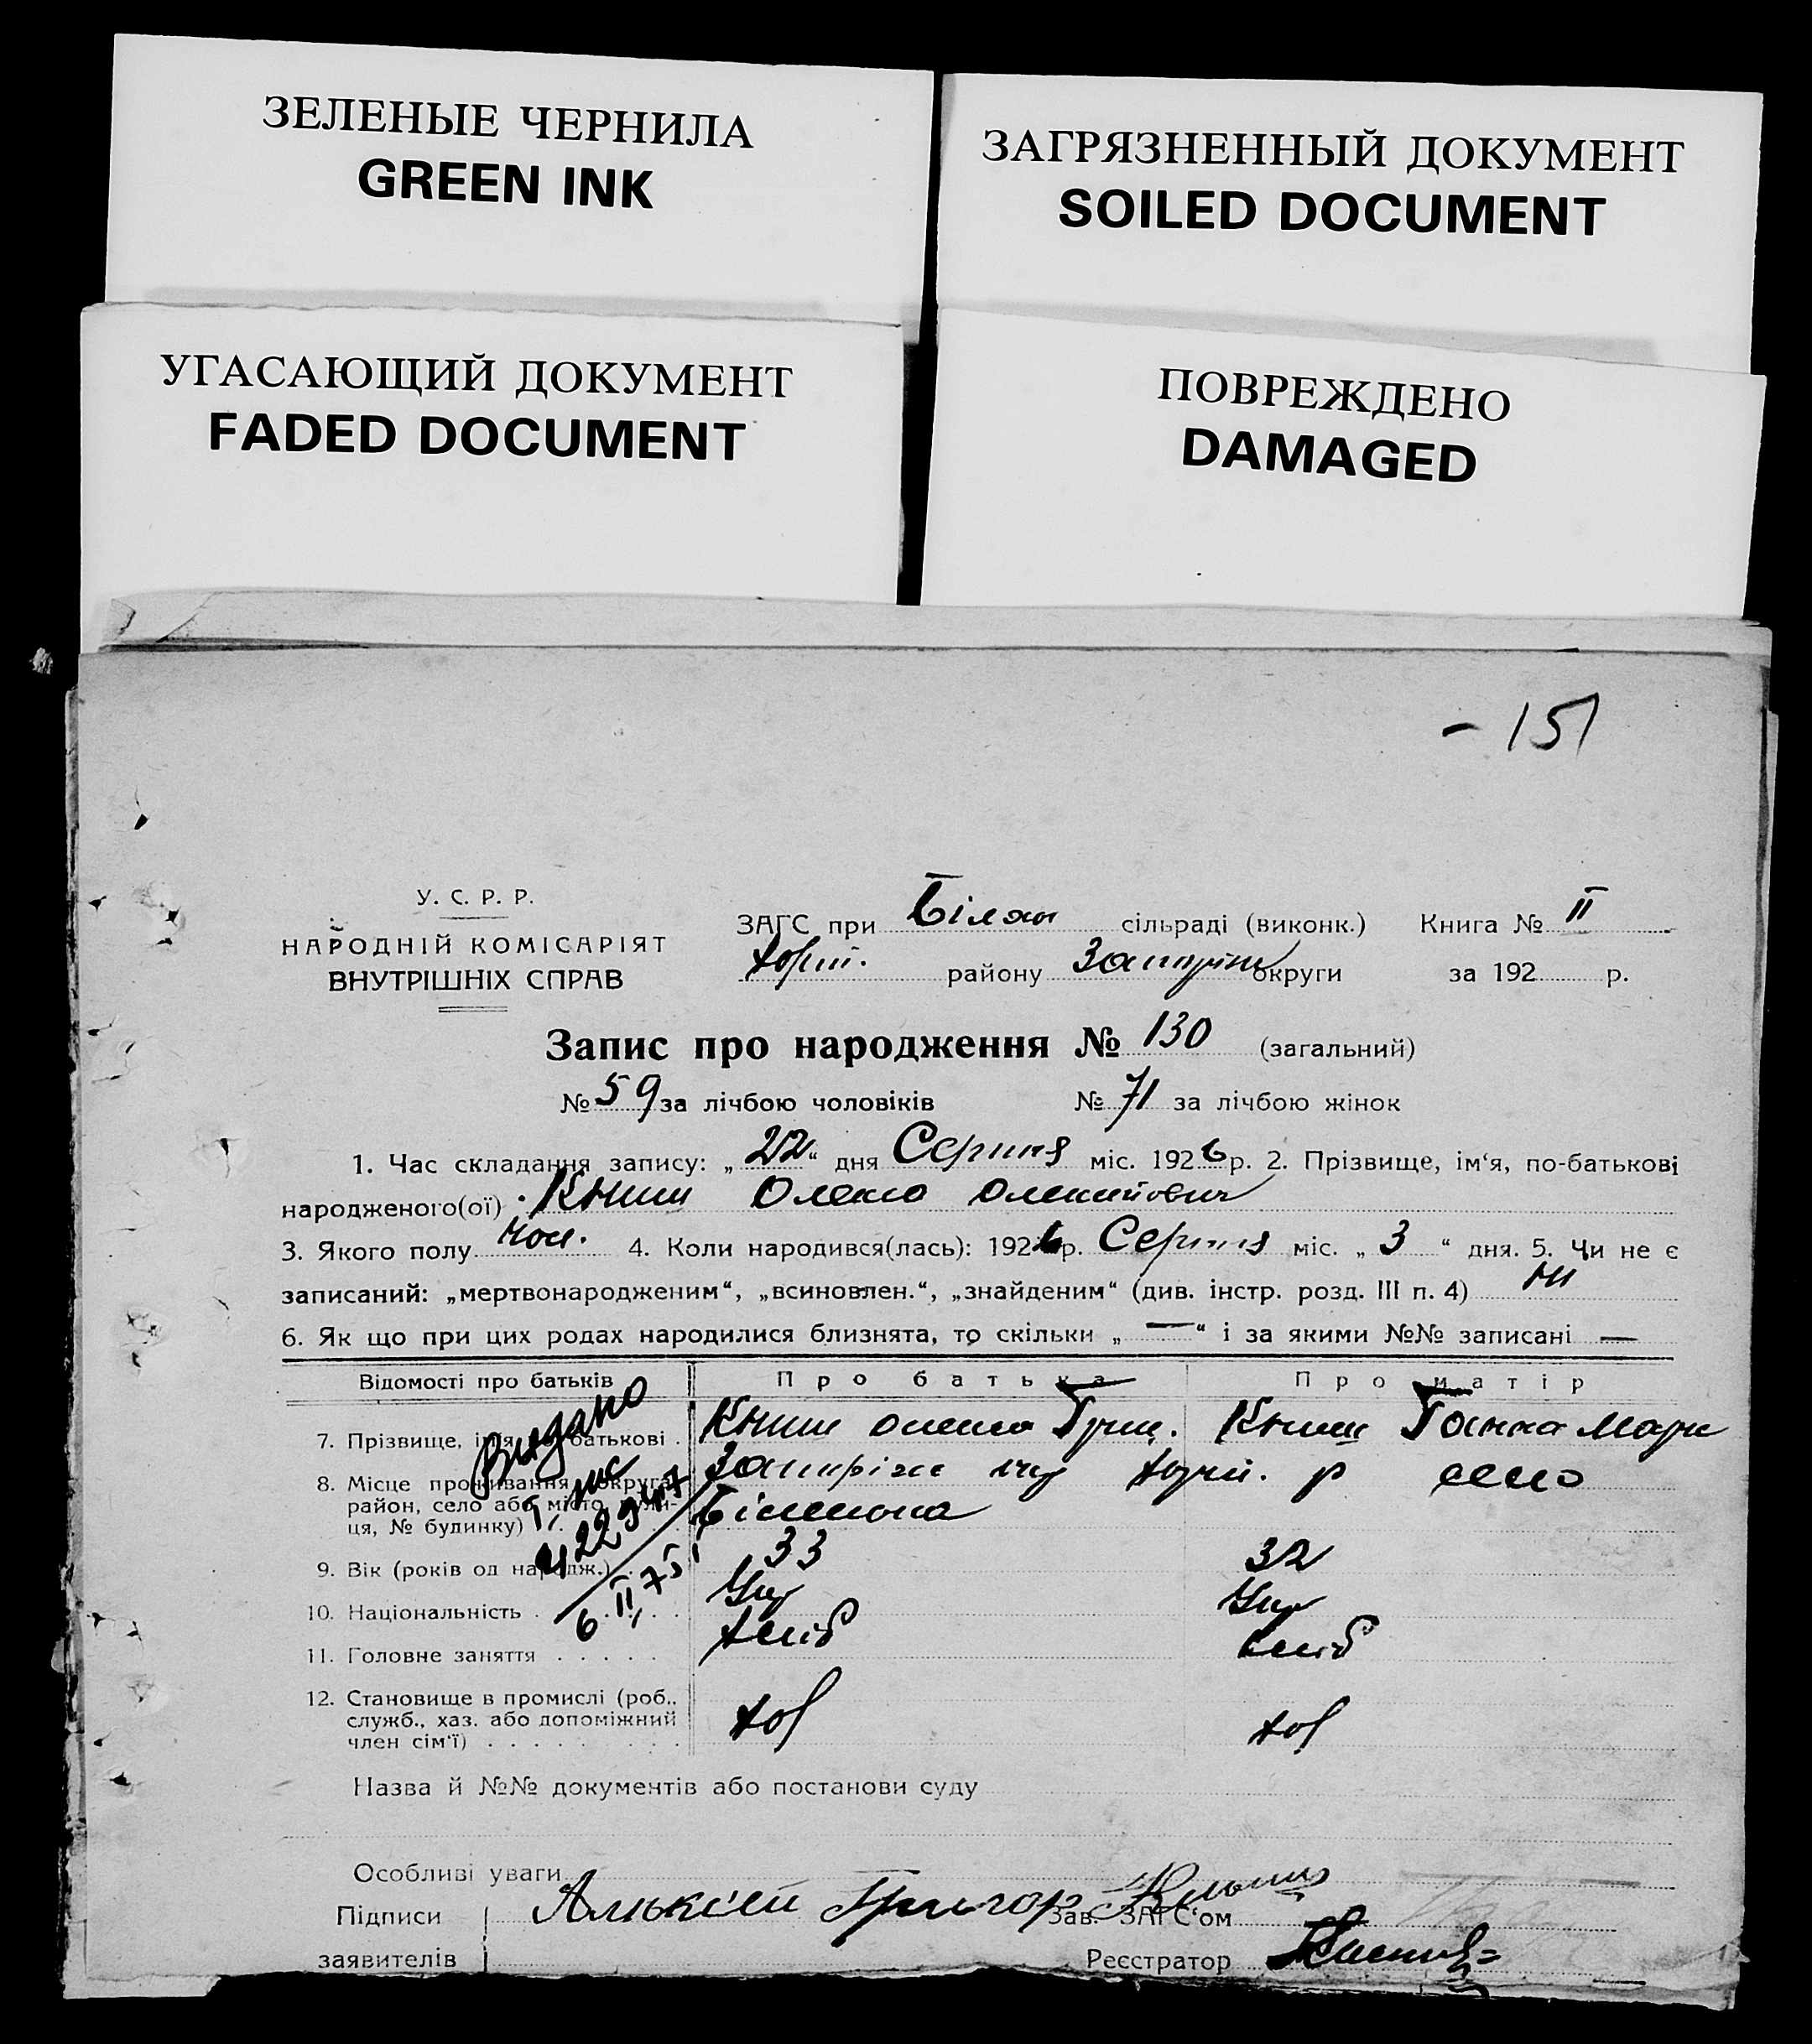 ЗЕЛЕНЫЕ ЧЕРНИЛА
GREEN INK
ЗАГРЯЗНЕННЫЙ ДОКУМЕНТ
SOILED DOCUMENT
УГАСАЮЩИЙ ДОКУМЕНТ
FADED DOCUMENT
ПОВРЕЖДЕНО
DAMAGED
- 151
У. С. Р. Р.
НАРОДНІЙ КОМІСАРІЯТ
ВНУТРІШНІХ СПРАВ
ЗАГС при сільраді (виконк.) Книга № II
району округи за 192 р.
Запис про народження № 130 (загальний)
№ 59 за лічбою чоловіків № 71 за лічбою жінок
1. Час складання запису: „22“ дня Серпня міс. 1926 р. 2. Прізвище, ім‘я, по-батькові
народженого(ої) Книш Олекса Олексійович
3. Якого полу чол. 4. Коли народився(лась): 1926 р. Серпня міс. „3“ дня. 5. Чи не є
записаний: „мертвонародженим“, „всиновлен.“, „знайденим“ (див. інстр. розд. III п. 4) ні
6. Як що при цих родах народилися близнята, то скільки „—“ і за якими №№ записані —
Відомості про батьків Про батька Про матір
7. Прізвище, ім‘я, по батькові Книш Олекса Григ. Книш Ганна Марк
8. Місце проживання (округа, район, село або місто, вули-ця, № будинку) р село
9. Вік (років од народж.) 33 32
10. Національність Укр Укр
11. Головне заняття хліб хліб
12. Становище в промислі (роб., служб., хаз. або допоміжний член сім‘ї)
Видано
6.II.75
Назва й №№ документів або постанови суду
Особливі уваги
Підписи Григор Зав. ЗАГС‘ом
заявителів Реєстратор